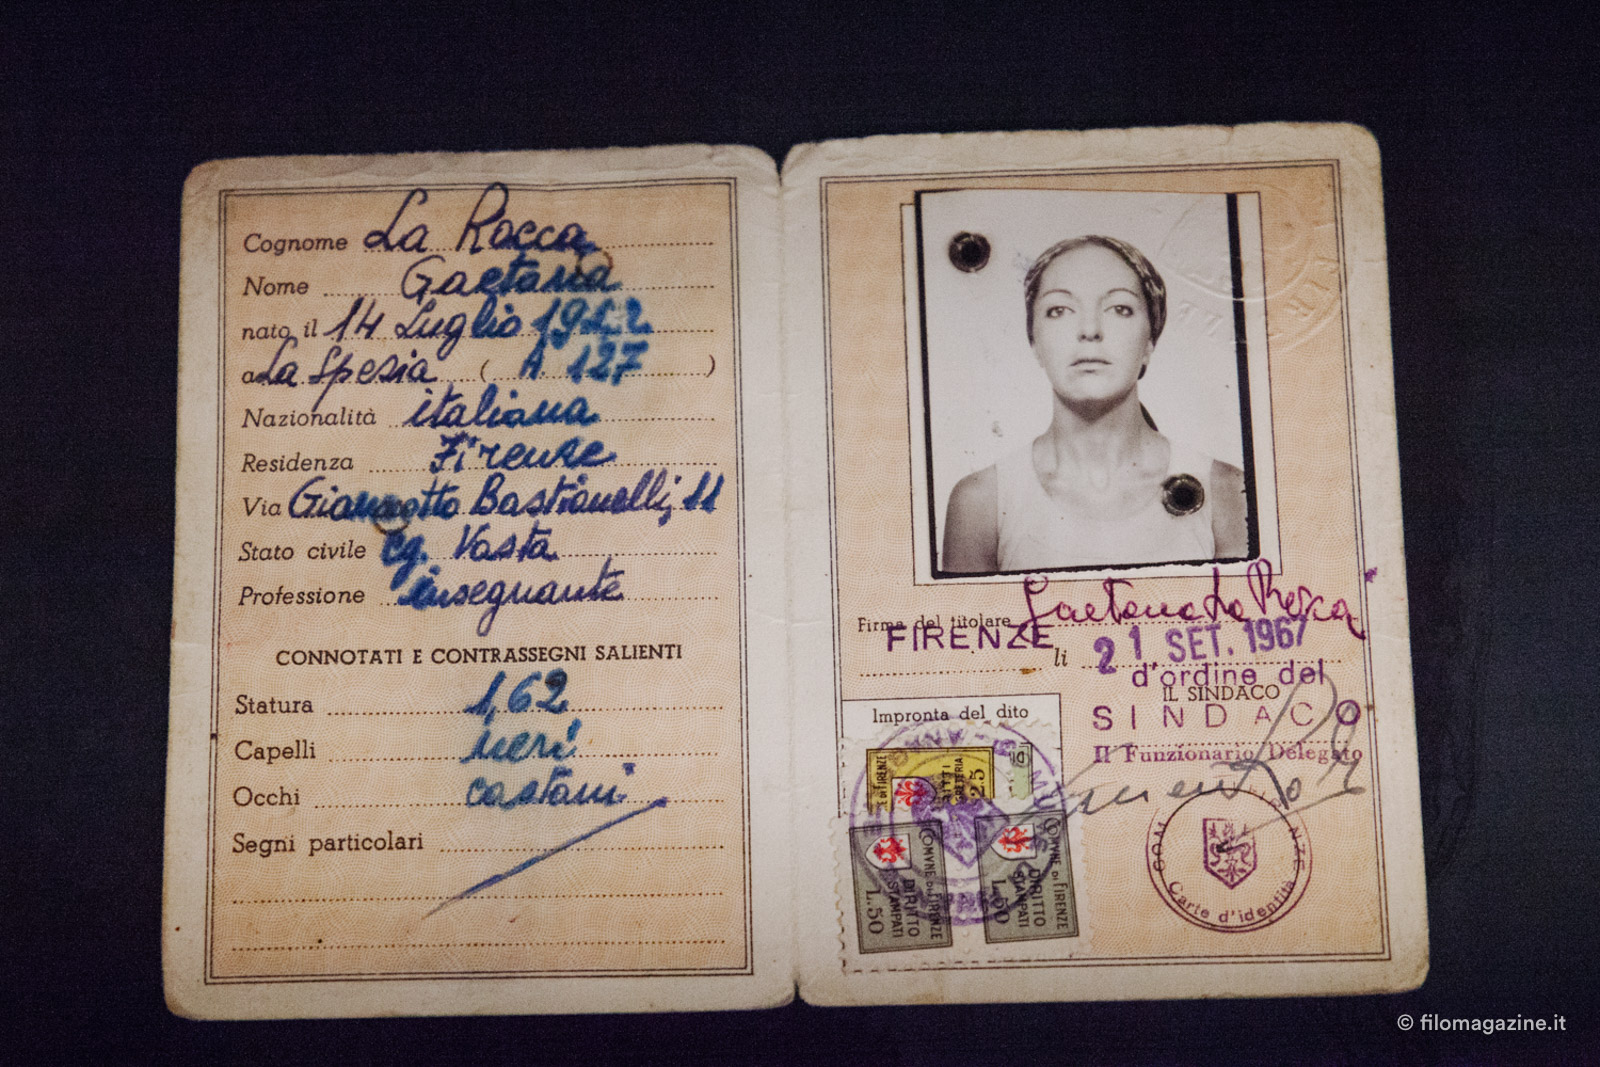 Cognome La Rocca
Nome Gaetana
nato il 14 Luglio 1942
a La Spezia ( A 127 )
Nazionalità italiana
Residenza Firenze
Via Gianzotto Bastianelli, 11
Stato civile cg. Vasta
Professione insegnante
CONNOTATI E CONTRASSEGNI SALIENTI
Statura 1,62
Capelli neri
Occhi castani
Segni particolari
Firma del titolare Gaetana La Rocca
FIRENZE li 21 SET. 1967
d'ordine del
IL SINDACO
SINDACO
Il Funzionario Delegato
Impronta del dito
COMVNE DI FIRENZE
DIRITTO
STAMPATI
L.50
COMVNE DI FIRENZE
DIRITTO
STAMPATI
25
Carte d'identità
© filomagazine.it